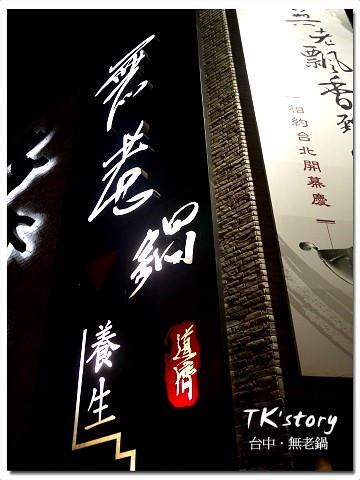 無老鍋
養生
道濟
無老飄香
相約台北開幕慶
TK'story
台中・無老鍋